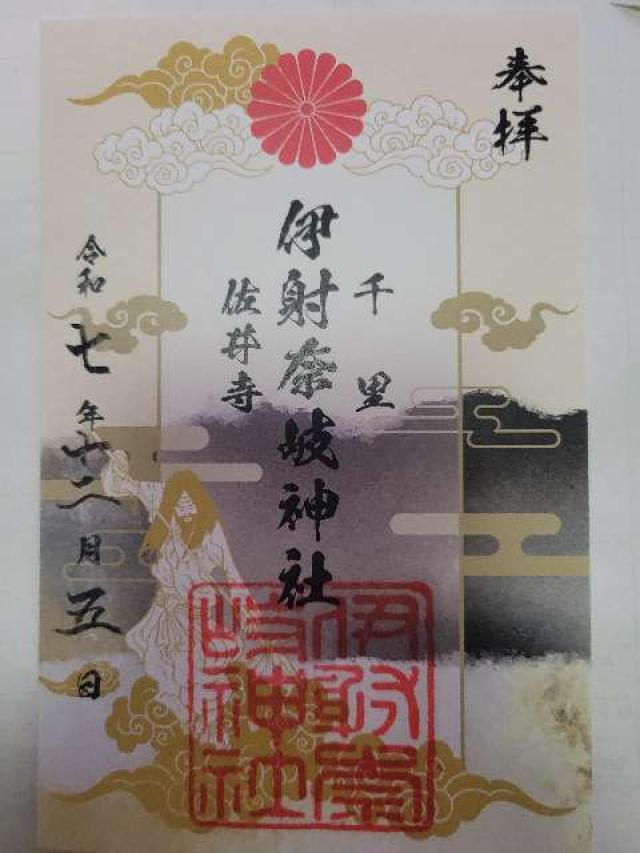 奉拝
千里
伊射奈岐神社
佐井寺
令和七年十二月五日
伊射奈岐神社